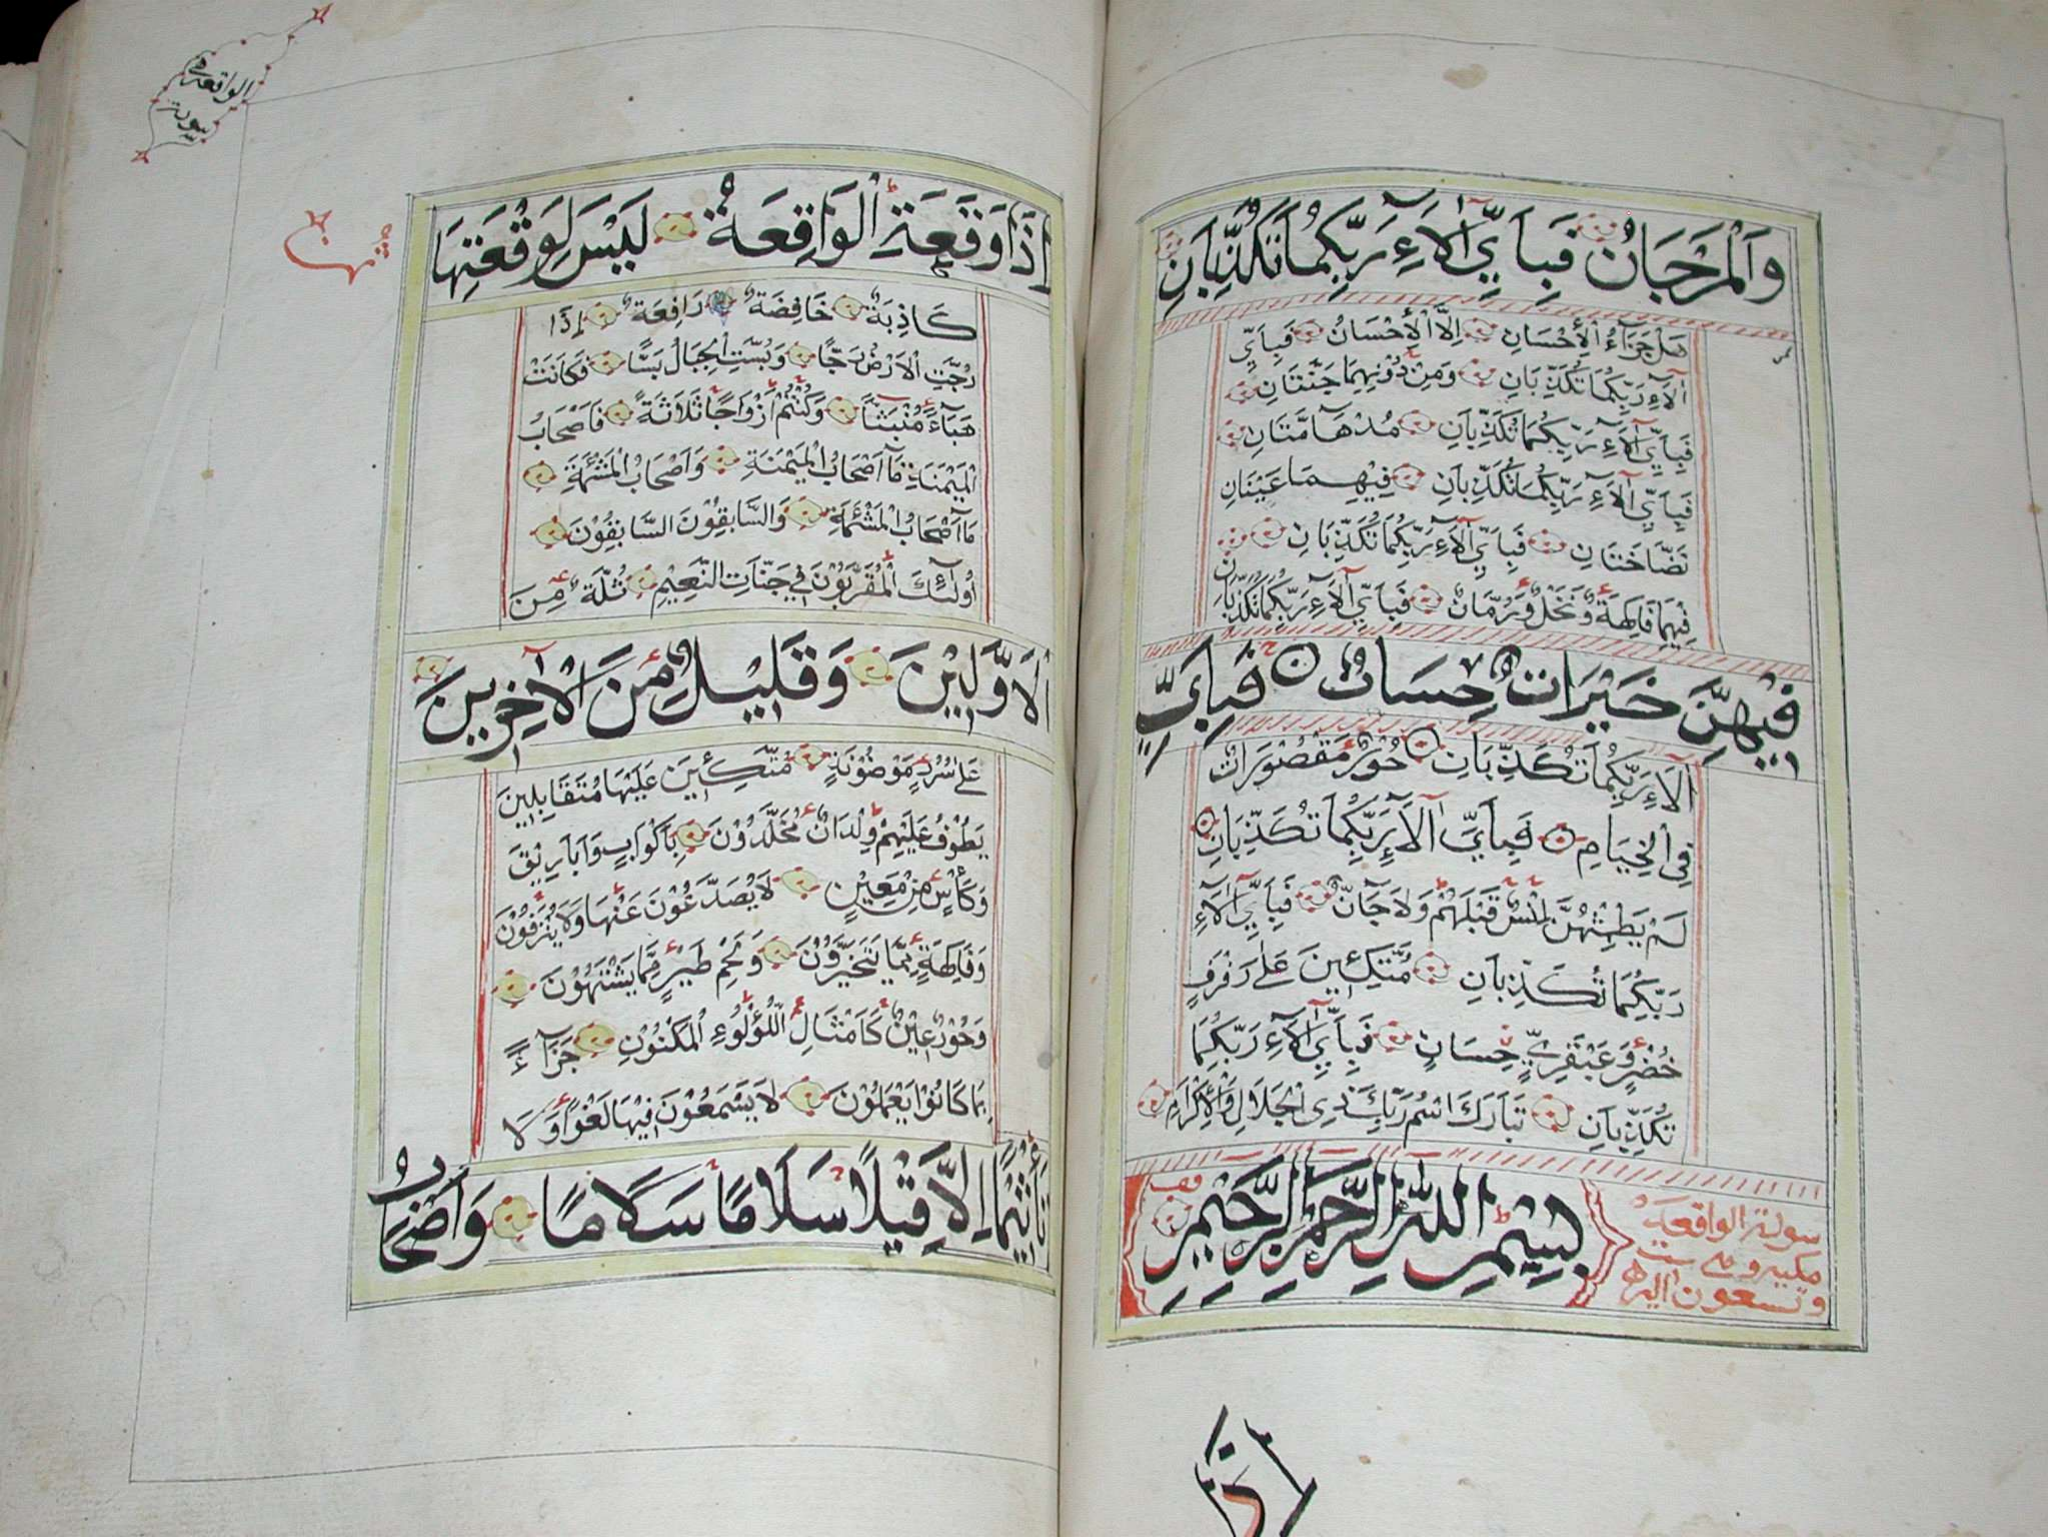 وَٱلْمَرْجَانُ فَبِأَيِّ آلَآءِ رَبِّكُمَا تُكَذِّبَانِ
هَلْ جَزَآءُ الْأِحْسَانِ اِلَّا الْأِحْسَانُ فَبِاَيِّ
آلَآءِ رَبِّكُمَا تُكَذِّبَانِ وَمِنْ دُوْنِهِمَا جَنَّتَانِ
فَبِاَيِّ آلَآءِ رَبِّكُمَا تُكَذِّبَانِ مُدْهَآمَّتَانِ
فَبِاَيِّ آلَآءِ رَبِّكُمَا تُكَذِّبَانِ فِيْهِمَا عَيْنَانِ
نَضَّاخَتَانِ فَبِاَيِّ آلَآءِ رَبِّكُمَا تُكَذِّبَانِ
فِيْهِمَا فَاكِهَةٌ وَنَخْلٌ وَرُمَّانٌ فَبِاَيِّ آلَآءِ رَبِّكُمَا تُكَذِّبَانِ
فِيْهِنَّ خَيْرَاتٌ حِسَانٌ فَبِاَيِّ
آلَآءِ رَبِّكُمَا تُكَذِّبَانِ حُوْرٌ مَقْصُوْرَاتٌ
فِي الْخِيَامِ فَبِاَيِّ آلَآءِ رَبِّكُمَا تُكَذِّبَانِ
لَمْ يَطْمِثْهُنَّ اِنْسٌ قَبْلَهُمْ وَلَا جَآنٌّ فَبِاَيِّ آلَآءِ
رَبِّكُمَا تُكَذِّبَانِ مُتَّكِئِيْنَ عَلٰى رَفْرَفٍ
خُضْرٍ وَعَبْقَرِيٍّ حِسَانٍ فَبِاَيِّ آلَآءِ رَبِّكُمَا
تُكَذِّبَانِ تَبَارَكَ اسْمُ رَبِّكَ ذِى الْجَلَالِ وَالْأِكْرَامِ
بِسْمِ اللّٰهِ الرَّحْمٰنِ الرَّحِيْمِ
سورة الواقعة
مكية وهي ست
وتسعون اية
اذا
سورة الواقعة
اِذَا وَقَعَةِ الْوَاقِعَةُ لَيْسَ لِوَقْعَتِهَا
كَاذِبَةٌ خَافِضَةٌ رَافِعَةٌ اِذَا
رُجَّتِ الْاَرْضُ رَجًّا وَبُسَّتِ الْجِبَالُ بَسًّا فَكَانَتْ
هَبَآءً مُنْبَثًّا وَكُنْتُمْ اَزْوَاجًا ثَلَاثَةً فَاَصْحَابُ
الْمَيْمَنَةِ مَآ اَصْحَابُ الْمَيْمَنَةِ وَاَصْحَابُ الْمَشْئَمَةِ
مَآ اَصْحَابُ الْمَشْئَمَةِ وَالسَّابِقُوْنَ السَّابِقُوْنَ
اُولٰٓئِكَ الْمُقَرَّبُوْنَ فِي جَنَّاتِ النَّعِيْمِ ثُلَّةٌ مِنَ
الْاَوَّلِيْنَ وَقَلِيْلٌ مِنَ الْآخِرِيْنَ
عَلٰى سُرُرٍ مَوْضُوْنَةٍ مُتَّكِئِيْنَ عَلَيْهَا مُتَقَابِلِيْنَ
يَطُوْفُ عَلَيْهِمْ وِلْدَانٌ مُخَلَّدُوْنَ بِاَكْوَابٍ وَاَبَارِيْقَ
وَكَأْسٍ مِنْ مَعِيْنٍ لَا يُصَدَّعُوْنَ عَنْهَا وَلَا يُنْزَفُوْنَ
وَفَاكِهَةٍ مِمَّا يَتَخَيَّرُوْنَ وَلَحْمِ طَيْرٍ مِمَّا يَشْتَهُوْنَ
وَحُوْرٌ عِيْنٌ كَاَمْثَالِ اللُّؤْلُوءِ الْمَكْنُوْنِ جَزَآءً
بِمَا كَانُوْا يَعْمَلُوْنَ لَا يَسْمَعُوْنَ فِيْهَا لَغْوًا وَلَا
تَأْثِيْمًا اِلَّا قِيْلًا سَلَامًا سَلَامًا وَاَصْحَابُ